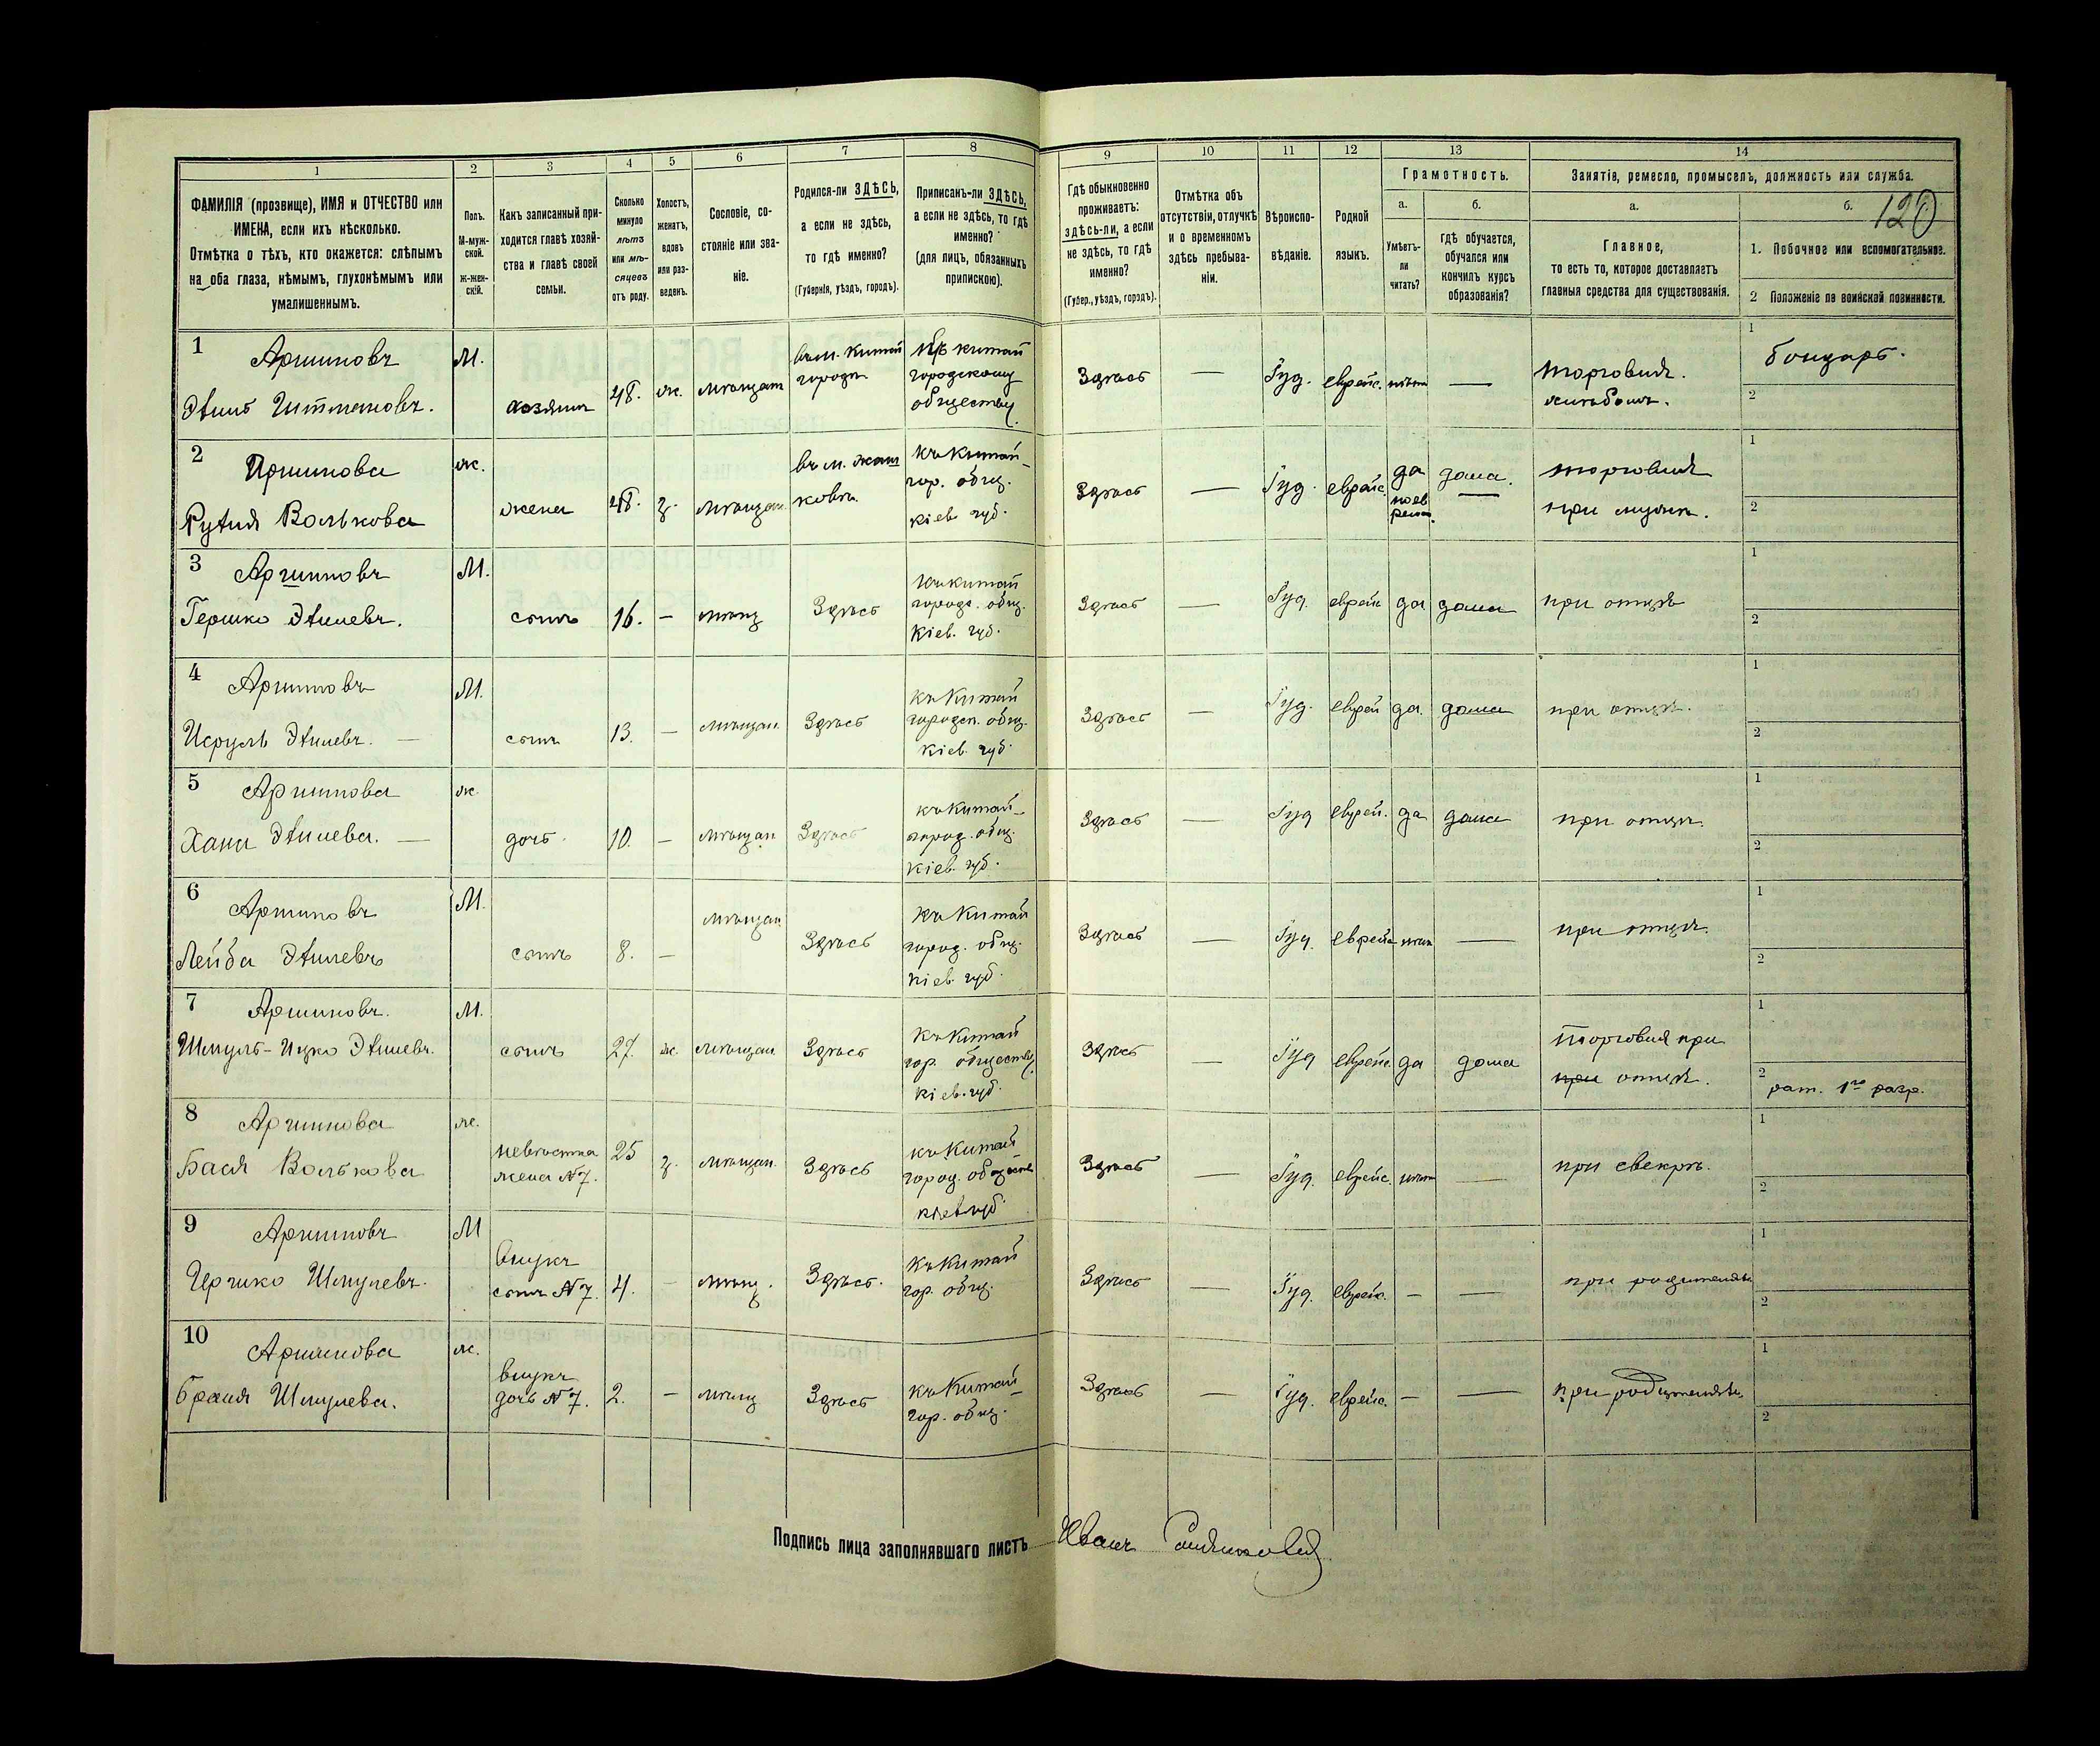 1 2 3 4 5 6 7 8 9 10 11 12 13 14
ФАМИЛІЯ (прозвище), ИМЯ и ОТЧЕСТВО или
ИМЕНА, если ихъ нѣсколько.
Отмѣтка о тѣхъ, кто окажется: слѣпымъ
на оба глаза, нѣмымъ, глухонѣмымъ или
умалишеннымъ.
Полъ.
М-муж-
ской.
ж-жен-
скій.
Какъ записанный при-
ходится главѣ хозяй-
ства и главѣ своей
семьи.
Сколько
минуло
лѣтъ
или мѣ-
сяцевъ
отъ роду.
Холостъ,
женатъ,
вдовъ
или раз-
веденъ.
Сословіе, со-
стояніе или зва-
ніе.
Родился-ли ЗДѢСЬ,
а если не здѣсь,
то гдѣ именно?
(Губернія, уѣздъ, городъ).
Приписанъ-ли ЗДѢСЬ,
а если не здѣсь, то гдѣ
именно?
(для лицъ, обязанныхъ
припискою).
Гдѣ обыкновенно
проживаетъ:
здѣсь-ли, а если
не здѣсь, то гдѣ
именно?
(Губер., уѣздъ, городъ).
Отмѣтка объ
отсутствіи, отлучкѣ
и о временномъ
здѣсь пребыва-
ніи.
Вѣроиспо-
вѣданіе.
Родной
языкъ.
Грамотность.
а.
Умѣетъ-
ли
читать?
б.
гдѣ обучается,
обучался или
кончилъ курсъ
образованія?
Занятія, ремесло, промыселъ, должность или служба.
а.
Главное,
то есть то, которое доставляетъ
главныя средства для существованія.
б.
120
1. Побочное или вспомогательное.
2 Положеніе по воинской повинности.
1 Аршиновъ
М. хозяинъ 48. ж. мѣщан
въ м. Китай
городѣ
Къ китай
городскому
обществу
Здѣсь — Іуд. еврейс. нѣтъ —
торговля
хлѣбомъ.
1 бондарь.
2
2 Аршинова
Волькова
ж. жена 48. З. мѣщан.
въ м. Жаш
ковѣ.
къ Китай-
гор. общ.
кіев. губ.
Здѣсь — Іуд. еврейс.
да
по ев
рейс.
дома.
торговля
при мужѣ.
1
2
3 Аршиновъ
Гершко
М. сынъ 16. — мѣщ Здѣсь
къ китай
городс. общ.
Кіев. губ.
Здѣсь — Іуд. еврейс да дома при отцѣ
1
2
4 Аршиновъ
Исруль
М. сынъ 13. — мѣщан. Здѣсь
къ Китай
городск. общ.
Кіев. губ.
Здѣсь — Іуд. еврей да. дома при отцѣ.
1
2
5 Аршинова
Хана
ж. дочь 10. — мѣщан Здѣсь
къ Китай-
город. общ.
Кіев. губ.
Здѣсь — Іуд еврей. да дома при отцѣ.
1
2
6 Аршиновъ
Лейба
М. сынъ 8. — мѣщан Здѣсь
къ Китай
город. общ.
Кіев. губ.
Здѣсь — Іуд. еврейс нѣтъ — при отцѣ.
1
2
7 Аршиновъ.
Шмуль-Ицко
М. сынъ 27. ж. мѣщан. Здѣсь
къ Китай
гор. обществу
Кіев. губ.
Здѣсь — Іуд еврейс. да дома
торговля при
при отцѣ.
1
2 рат. 1го разр.
8 Аршинова
Бася Волькова
ж.
невѣстка
жена №7.
25 З. мѣщан. Здѣсь
къ Китай
город. обществ
кіев губ.
Здѣсь — Іуд. еврейс. нѣтъ — при свекрѣ.
1
2
9 Аршиновъ
Шмулевъ.
М
внукъ
сынъ №7.
4. — мѣщ. Здѣсь.
къ Китай
гор. общ.
Здѣсь — Іуд. еврейс. — — при родителяхъ
1
2
10 Аршинова
Шмулева.
ж.
внукъ
дочь №7.
2. — мѣщ Здѣсь
къ Китай-
гор. общ.
Здѣсь — Іуд. еврейс. — — при родителяхъ
1
2
Подпись лица заполнявшаго листъ Иванъ